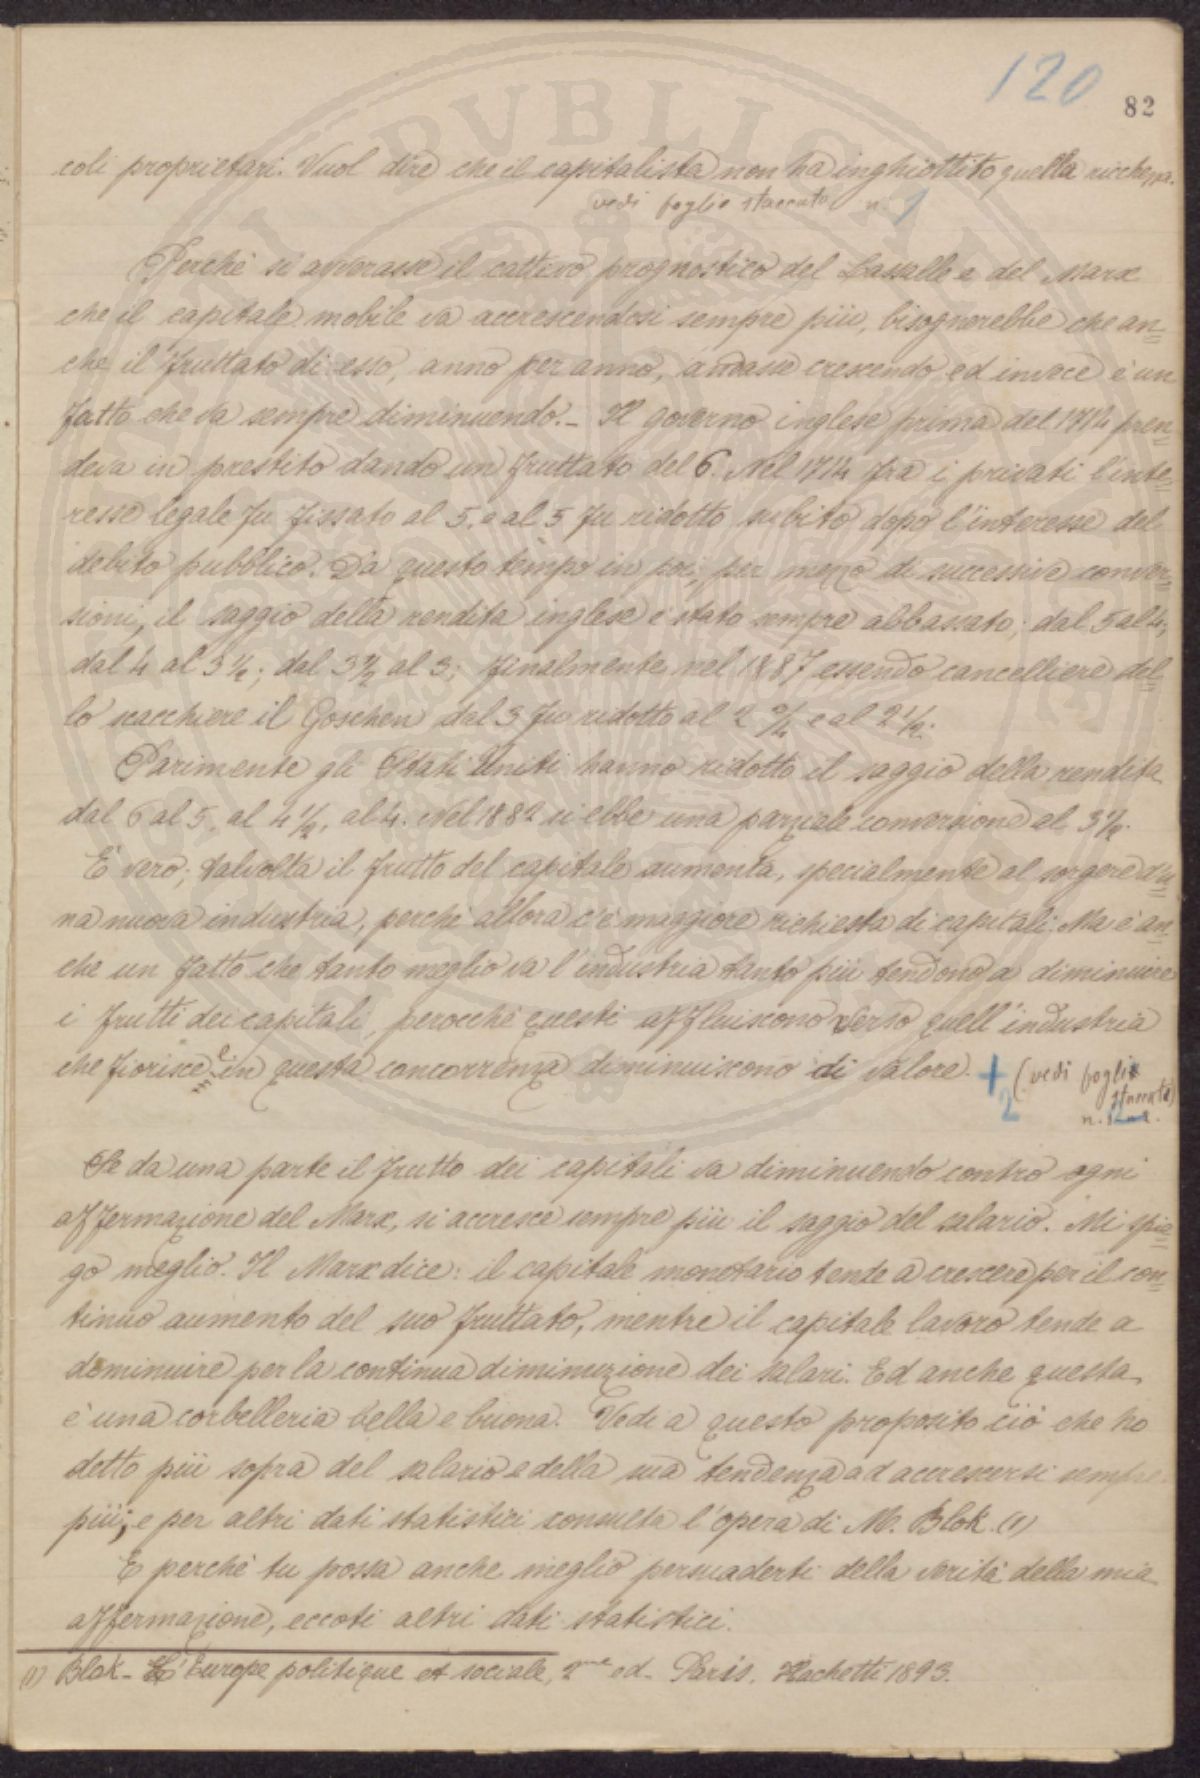 120
82
coli proprietari. Vuol dire che il capitalista non ha inghiottito quella ricchezza.
vedi foglio staccato n. 1
Perchè si avverasse il cattivo prognostico del Lassalle e del Marx
che il capitale mobile va accrescendosi sempre più, bisognerebbe che an=
che il fruttato di esso, anno per anno, andasse crescendo ed invece è un
fatto che va sempre diminuendo. - Il governo inglese prima del 1714 pren=
deva in prestito dando un fruttato del 6. Nel 1714 fra i privati l'inte=
resse legale fu fissato al 5, e al 5 fu ridotto subito dopo l'interesse del
debito pubblico. Da questo tempo in poi, per mezzo di successive conver=
sioni, il saggio della rendita inglese è stato sempre abbassato; dal 5 al 4;
dal 4 al 3 ½; dal 3 ½ al 3; finalmente nel 1887 essendo cancelliere del=
lo scacchiere il Goschen dal 3 fu ridotto al 2 ¾ e al 2 ½.
Parimente gli Stati Uniti hanno ridotto il saggio della rendita
dal 6 al 5, al 4 ½, al 4. Nel 1882 si ebbe una parziale conversione al 3 ½.
È vero; talvolta il frutto del capitale aumenta, specialmente al sorgere d'u=
na nuova industria, perchè allora c'è maggiore richiesta di capitali. Ma è an=
che un fatto che tanto meglio va l'industria tanto più tendono a diminuire
i frutti dei capitali, perocchè questi affluiscono verso quell'industria
che fiorisce e in questa concorrenza diminuiscono di valore. + 2 (vedi foglio
staccato)
n. 2
Se da una parte il frutto dei capitali va diminuendo contro ogni
affermazione del Marx, si accresce sempre più il saggio del salario. Mi spie=
go meglio. Il Marx dice: il capitale monetario tende a crescere per il con=
tinuo aumento del suo fruttato, mentre il capitale lavoro tende a
diminuire per la continua diminuzione dei salari. Ed anche questa
è una corbelleria bella e buona. Vedi a questo proposito ciò che ho
detto più sopra del salario e della sua tendenza ad accrescersi sempre
più; e per altri dati statistici consulta l'opera di M. Blok (1)
E perchè tu possa anche meglio persuaderti della verità della mia
affermazione, eccoti altri dati statistici.
(1) Blok - L'Europe politique et sociale, 2me ed. Paris. Hachetti 1893.